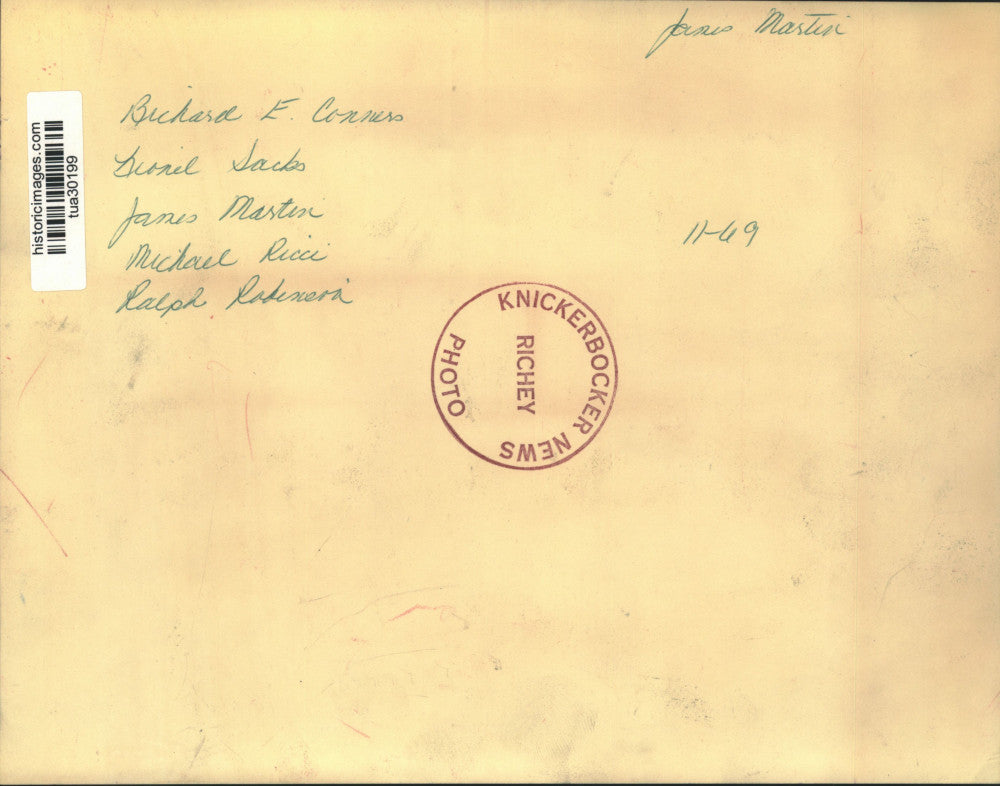 James Martin
Richard E. Conners
Lionel Sacks
James Martin
Michael Ricci
Ralph Robinson
11-69
historicimages.com
tua30199
KNICKERBOCKER NEWS
RICHEY
PHOTO